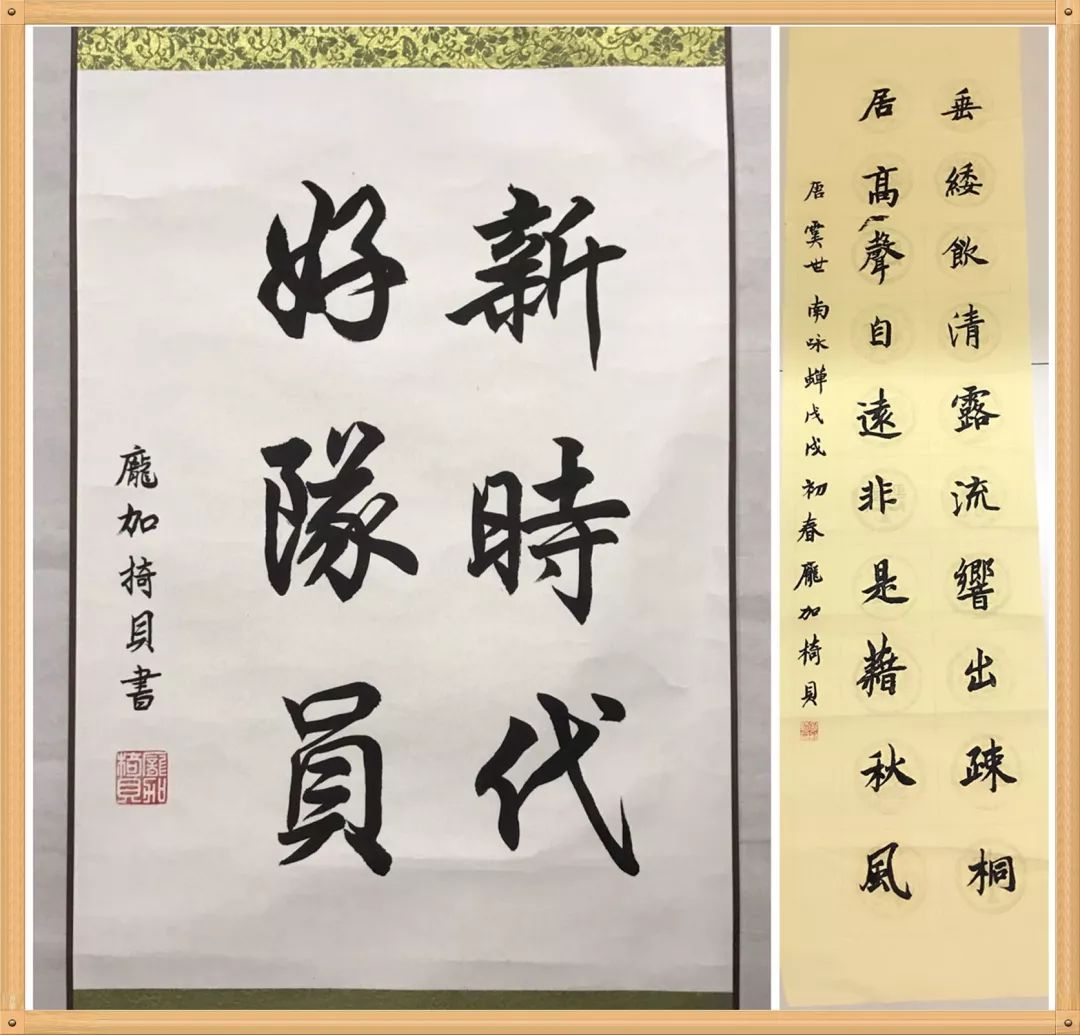 新時代
好隊員
龐加掎貝書
垂緌飲清露流響出疎桐
居高聲自遠非是藉秋風
唐虞世南咏蟬戊戌初春龐加椅貝